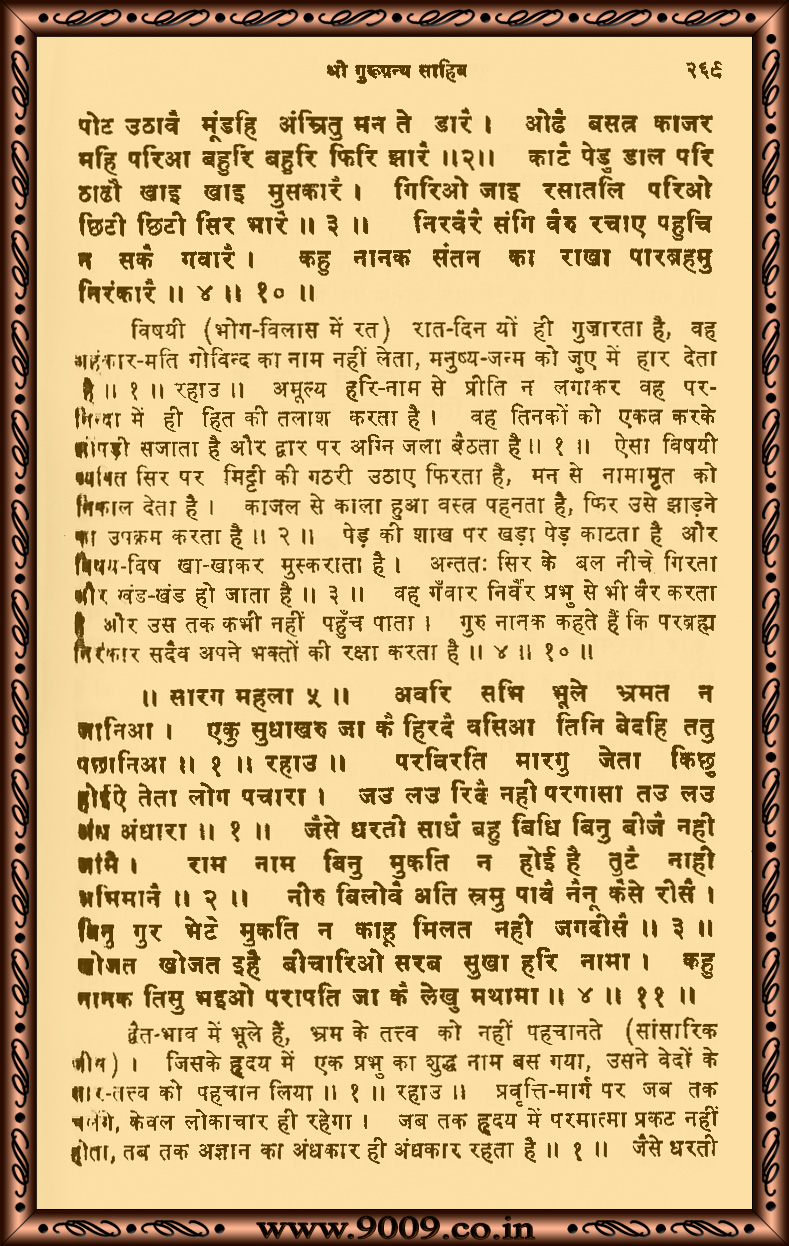 श्री गुरूग्रन्थ साहिब २६९
पोट उठावै मूंडहि अंम्रितु मन ते डारै । ओढै बसत्र काजर
महि परिआ बहुरि बहुरि फिरि झारै ॥२॥ काटै पेडु डाल परि
ठाढौ खाइ खाइ मुसकारै । गिरिओ जाइ रसातलि परिओ
छिटी छिटी सिर भारै ॥ ३ ॥ निरवैरै संगि वैरु रचाए पहुचि
न सकै गवारै । कहु नानक संतन का राखा पारब्रहमु
निरंकारै ॥ ४ ॥ १० ॥
विषयी (भोग-विलास में रत) रात-दिन यों ही गुजारता है, वह
अहंकार-मति गोविन्द का नाम नहीं लेता, मनुष्य-जन्म को जुए में हार देता
है ॥ १ ॥ रहाउ ॥ अमूल्य हरि-नाम से प्रीति न लगाकर वह पर-
निन्दा में ही हित की तलाश करता है । वह तिनकों को एकत्र करके
झोंपड़ी सजाता है और द्वार पर अग्नि जला बैठता है ॥ १ ॥ ऐसा विषयी
व्यक्ति सिर पर मिट्टी की गठरी उठाए फिरता है, मन से नामामृत को
निकाल देता है । काजल से काला हुआ वस्त्र पहनता है, फिर उसे झाड़ने
का उपक्रम करता है ॥ २ ॥ पेड़ की शाख पर खड़ा पेड़ काटता है और
विषय-विष खा-खाकर मुस्कराता है । अन्ततः सिर के बल नीचे गिरता
और खंड-खंड हो जाता है ॥ ३ ॥ वह गँवार निर्वैर प्रभु से भी वैर करता
है और उस तक कभी नहीं पहुँच पाता । गुरु नानक कहते हैं कि परब्रह्म
निरंकार सदैव अपने भक्तों की रक्षा करता है ॥ ४ ॥ १० ॥
॥ सारग महला ५ ॥ अवरि सभि भूले भ्रमत न
जानिआ । एकु सुधाखरु जा कै हिरदै वसिआ तिनि बेदहि ततु
पछानिआ ॥ १ ॥ रहाउ ॥ परविरति मारगु जेता किछु
होईऐ तेता लोग पचारा । जउ लउ रिदै नही परगासा तउ लउ
अंध अंधारा ॥ १ ॥ जैसे धरती साधै बहु बिधि बिनु बीजै नही
जांमै । राम नाम बिनु मुकति न होई है तुटै नाही
अभिमानै ॥ २ ॥ नीरु बिलोवै अति स्रमु पावै नैनू कैसे रीसै ।
बिनु गुर भेटे मुकति न काहू मिलत नही जगदीसै ॥ ३ ॥
खोजत खोजत इहै बीचारिओ सरब सुखा हरि नामा । कहु
नानक तिसु भइओ परापति जा कै लेखु मथामा ॥ ४ ॥ ११ ॥
द्वैत-भाव में भूले हैं, भ्रम के तत्त्व को नहीं पहचानते (सांसारिक
जीव) । जिसके हृदय में एक प्रभु का शुद्ध नाम बस गया, उसने वेदों के
सार-तत्त्व को पहचान लिया ॥ १ ॥ रहाउ ॥ प्रवृत्ति-मार्ग पर जब तक
चलेंगे, केवल लोकाचार ही रहेगा । जब तक हृदय में परमात्मा प्रकट नहीं
होता, तब तक अज्ञान का अंधकार ही अंधकार रहता है ॥ १ ॥ जैसे धरती
www.9009.co.in